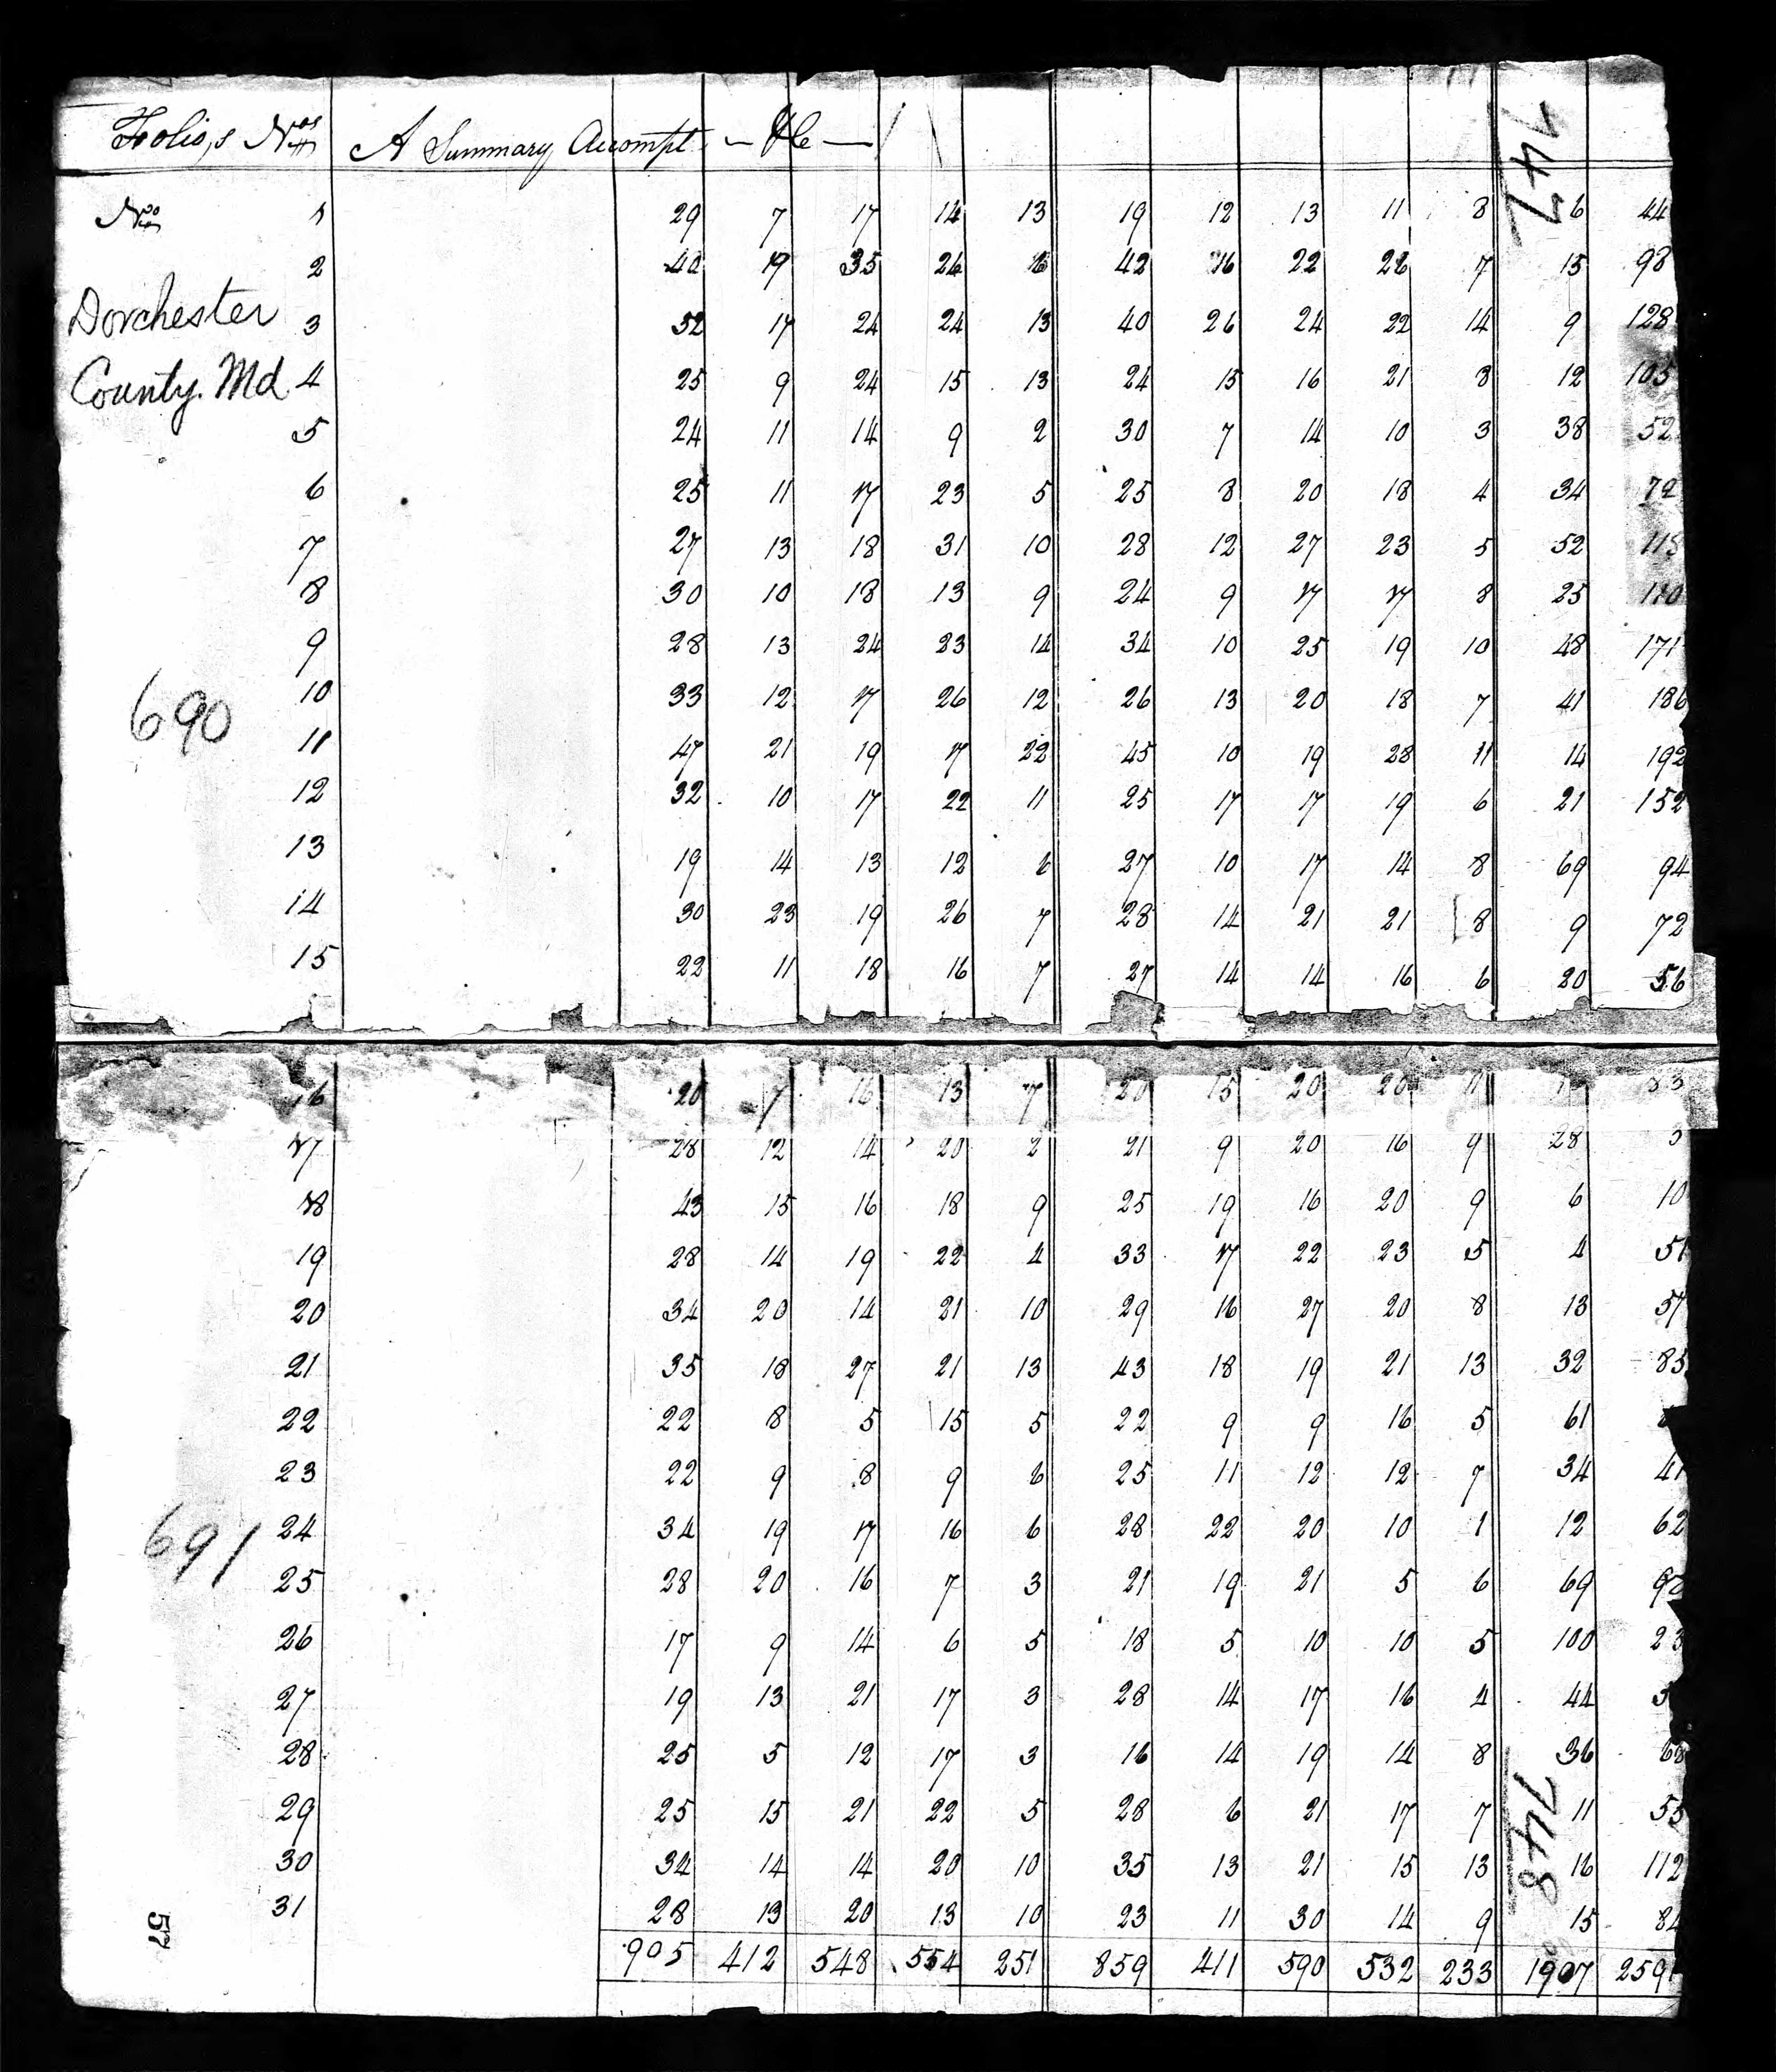 Folio,s Nos A Summary Accompt — &c —
747
No 1 29 7 17 14 13 19 12 13 11 8 6 44
2 40 19 35 24 42 16 22 7 15 98
Dorchester 3 52 17 24 24 13 40 26 24 22 14 9 128
County. Md. 4 25 9 24 15 13 24 15 16 21 8 12 105
5 24 11 14 9 2 30 7 14 10 3 38 52
6 25 11 17 23 5 25 8 20 18 4 34 72
7 27 13 18 31 10 28 12 27 23 5 52
8 30 10 18 13 9 24 9 17 17 8 25
9 28 13 24 23 14 34 10 25 19 10 48 171
690
10 33 12 17 26 12 26 13 20 18 7 41 186
11 47 21 19 17 22 45 10 19 28 11 14 192
12 32 10 17 22 11 25 17 17 19 6 21 152
13 19 14 13 12 6 27 10 17 14 8 69 94
14 30 23 19 26 7 28 14 21 21 8 9 72
15 22 11 18 16 7 27 14 14 16 6 20 56
16 20 7 16 13 7 20 15 20 20 11
17 28 12 14 20 2 21 9 20 16 9 28
18 43 15 16 18 9 25 19 16 20 9 6 10
19 28 14 19 22 4 33 17 22 23 5 4 51
20 34 20 14 21 10 29 16 27 20 8 13 57
21 35 18 27 21 13 43 18 19 21 13 32 85
22 22 8 5 15 5 22 9 9 16 5 61
23 22 9 8 9 6 25 11 12 12 7 34 41
691
24 34 19 17 16 6 28 22 20 10 1 12 62
25 28 20 16 7 3 21 19 21 5 6 69
26 17 9 14 6 5 18 5 10 10 5 100 23
27 19 13 21 17 3 28 14 17 16 4 44
28 25 5 12 17 3 16 14 19 14 8 36 68
748
29 25 15 21 22 5 28 6 21 17 7 11 55
30 34 14 14 20 10 35 13 21 15 13 16 112
31 28 13 20 13 10 23 11 30 14 9 15 84
57
905 412 548 554 251 859 411 590 532 233 1907 259